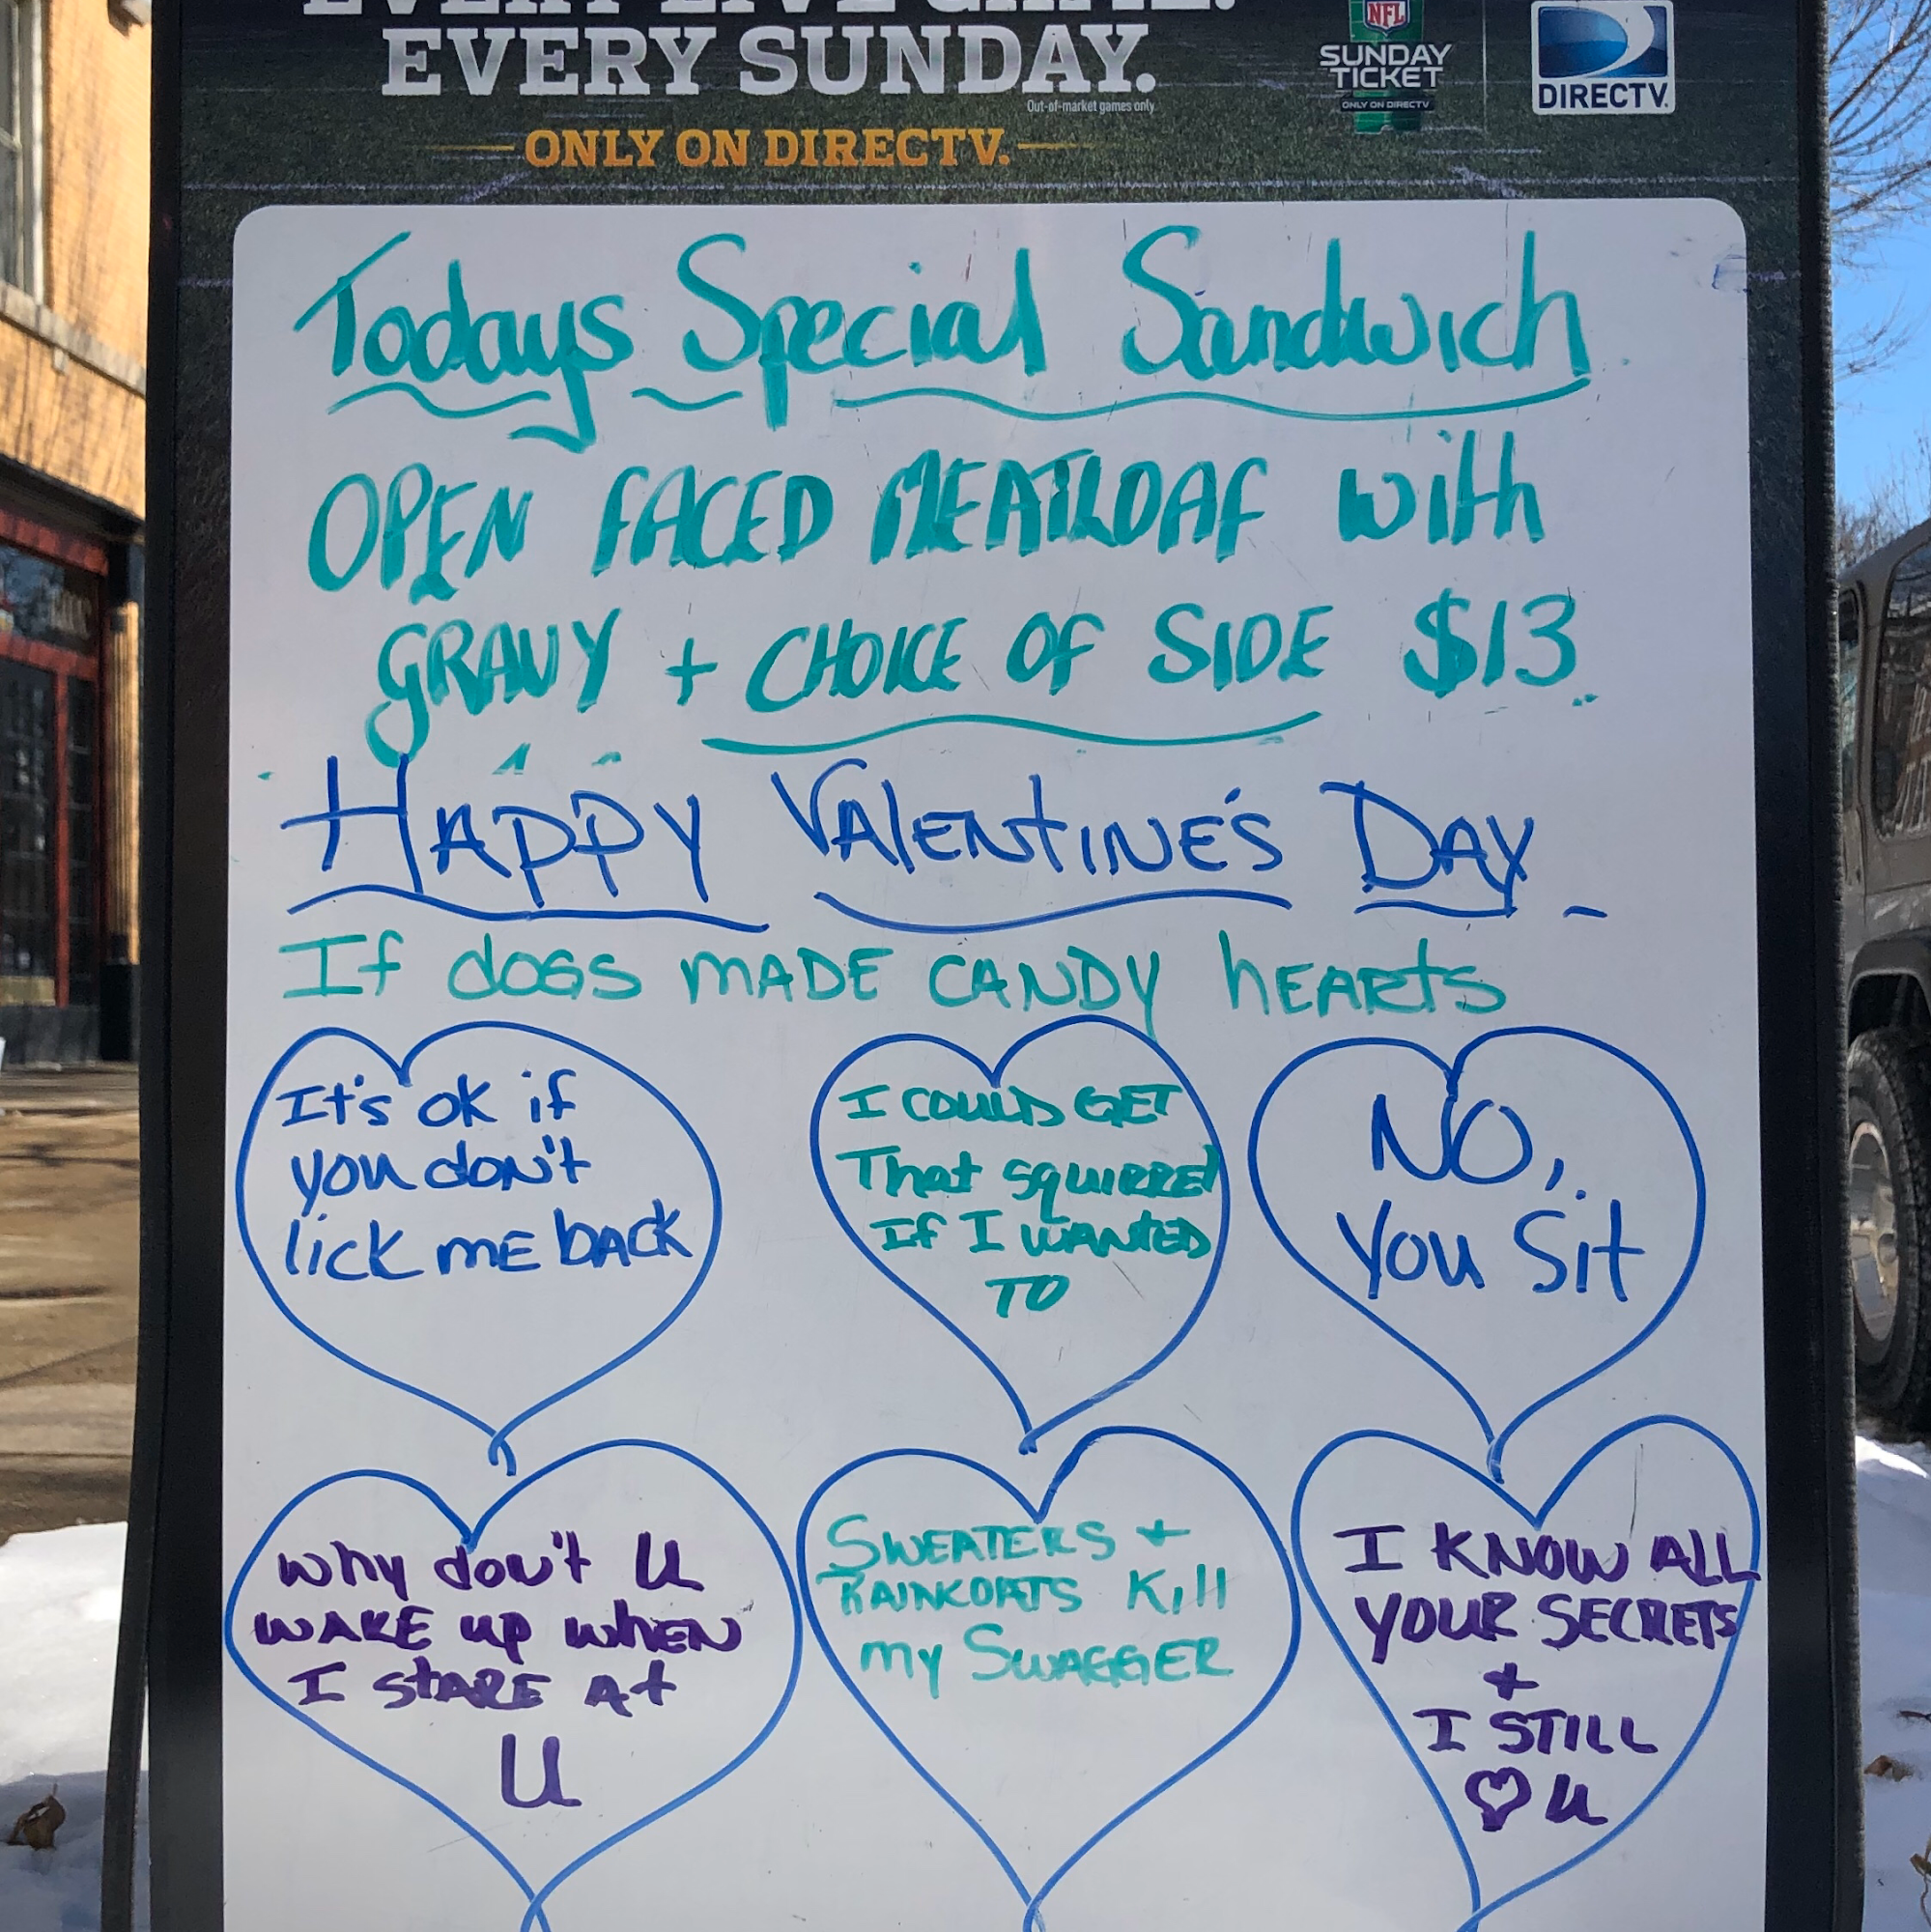 EVERY LIVE GAME.
EVERY SUNDAY.
Out-of-market games only.
ONLY ON DIRECTV.
NFL
SUNDAY
TICKET
ONLY ON DIRECTV
DIRECTV
Todays Special Sandwich
OPEN FACED MEATLOAF with
GRAVY + CHOICE OF SIDE $13
HAPPY VALENTINE'S DAY
If dOGS MADE CANDY hEARTS
It's OK if
you don't
lick ME BACK
I COULD GET
That squirrel
If I WANTED
TO
NO,
You Sit
Why don't U
WAKE up whEN
I STARE At
U
SWEATERS +
RAINCOATS Kill
my SWAGGER
I KNOW ALL
YOUR SECRETS
+
I STILL
♡ U